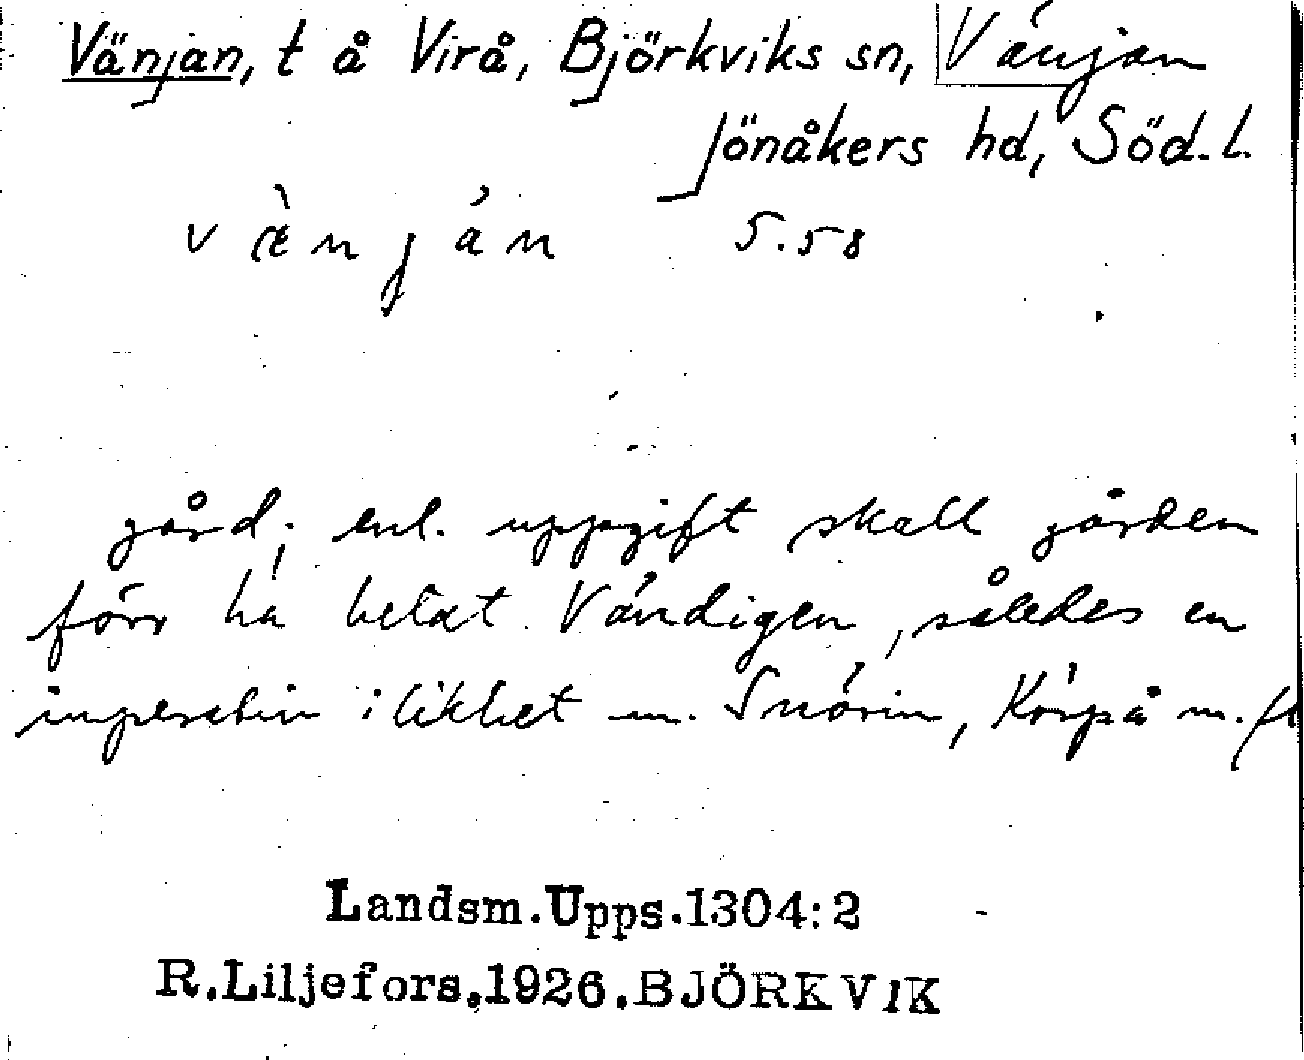 Vänjan, t å Virå, Björkviks sn, Vänjan
Jönåkers hd, Söd. l.
v æ̀ n j á n 5.58
gård; enl. uppgift skall gården
förr ha hetat Vändigen, således en
i likhet m. Snörin, Körpå m. fl
Landsm.Upps.1304:2
R.Liljefors.1926.BJÖRKVIK